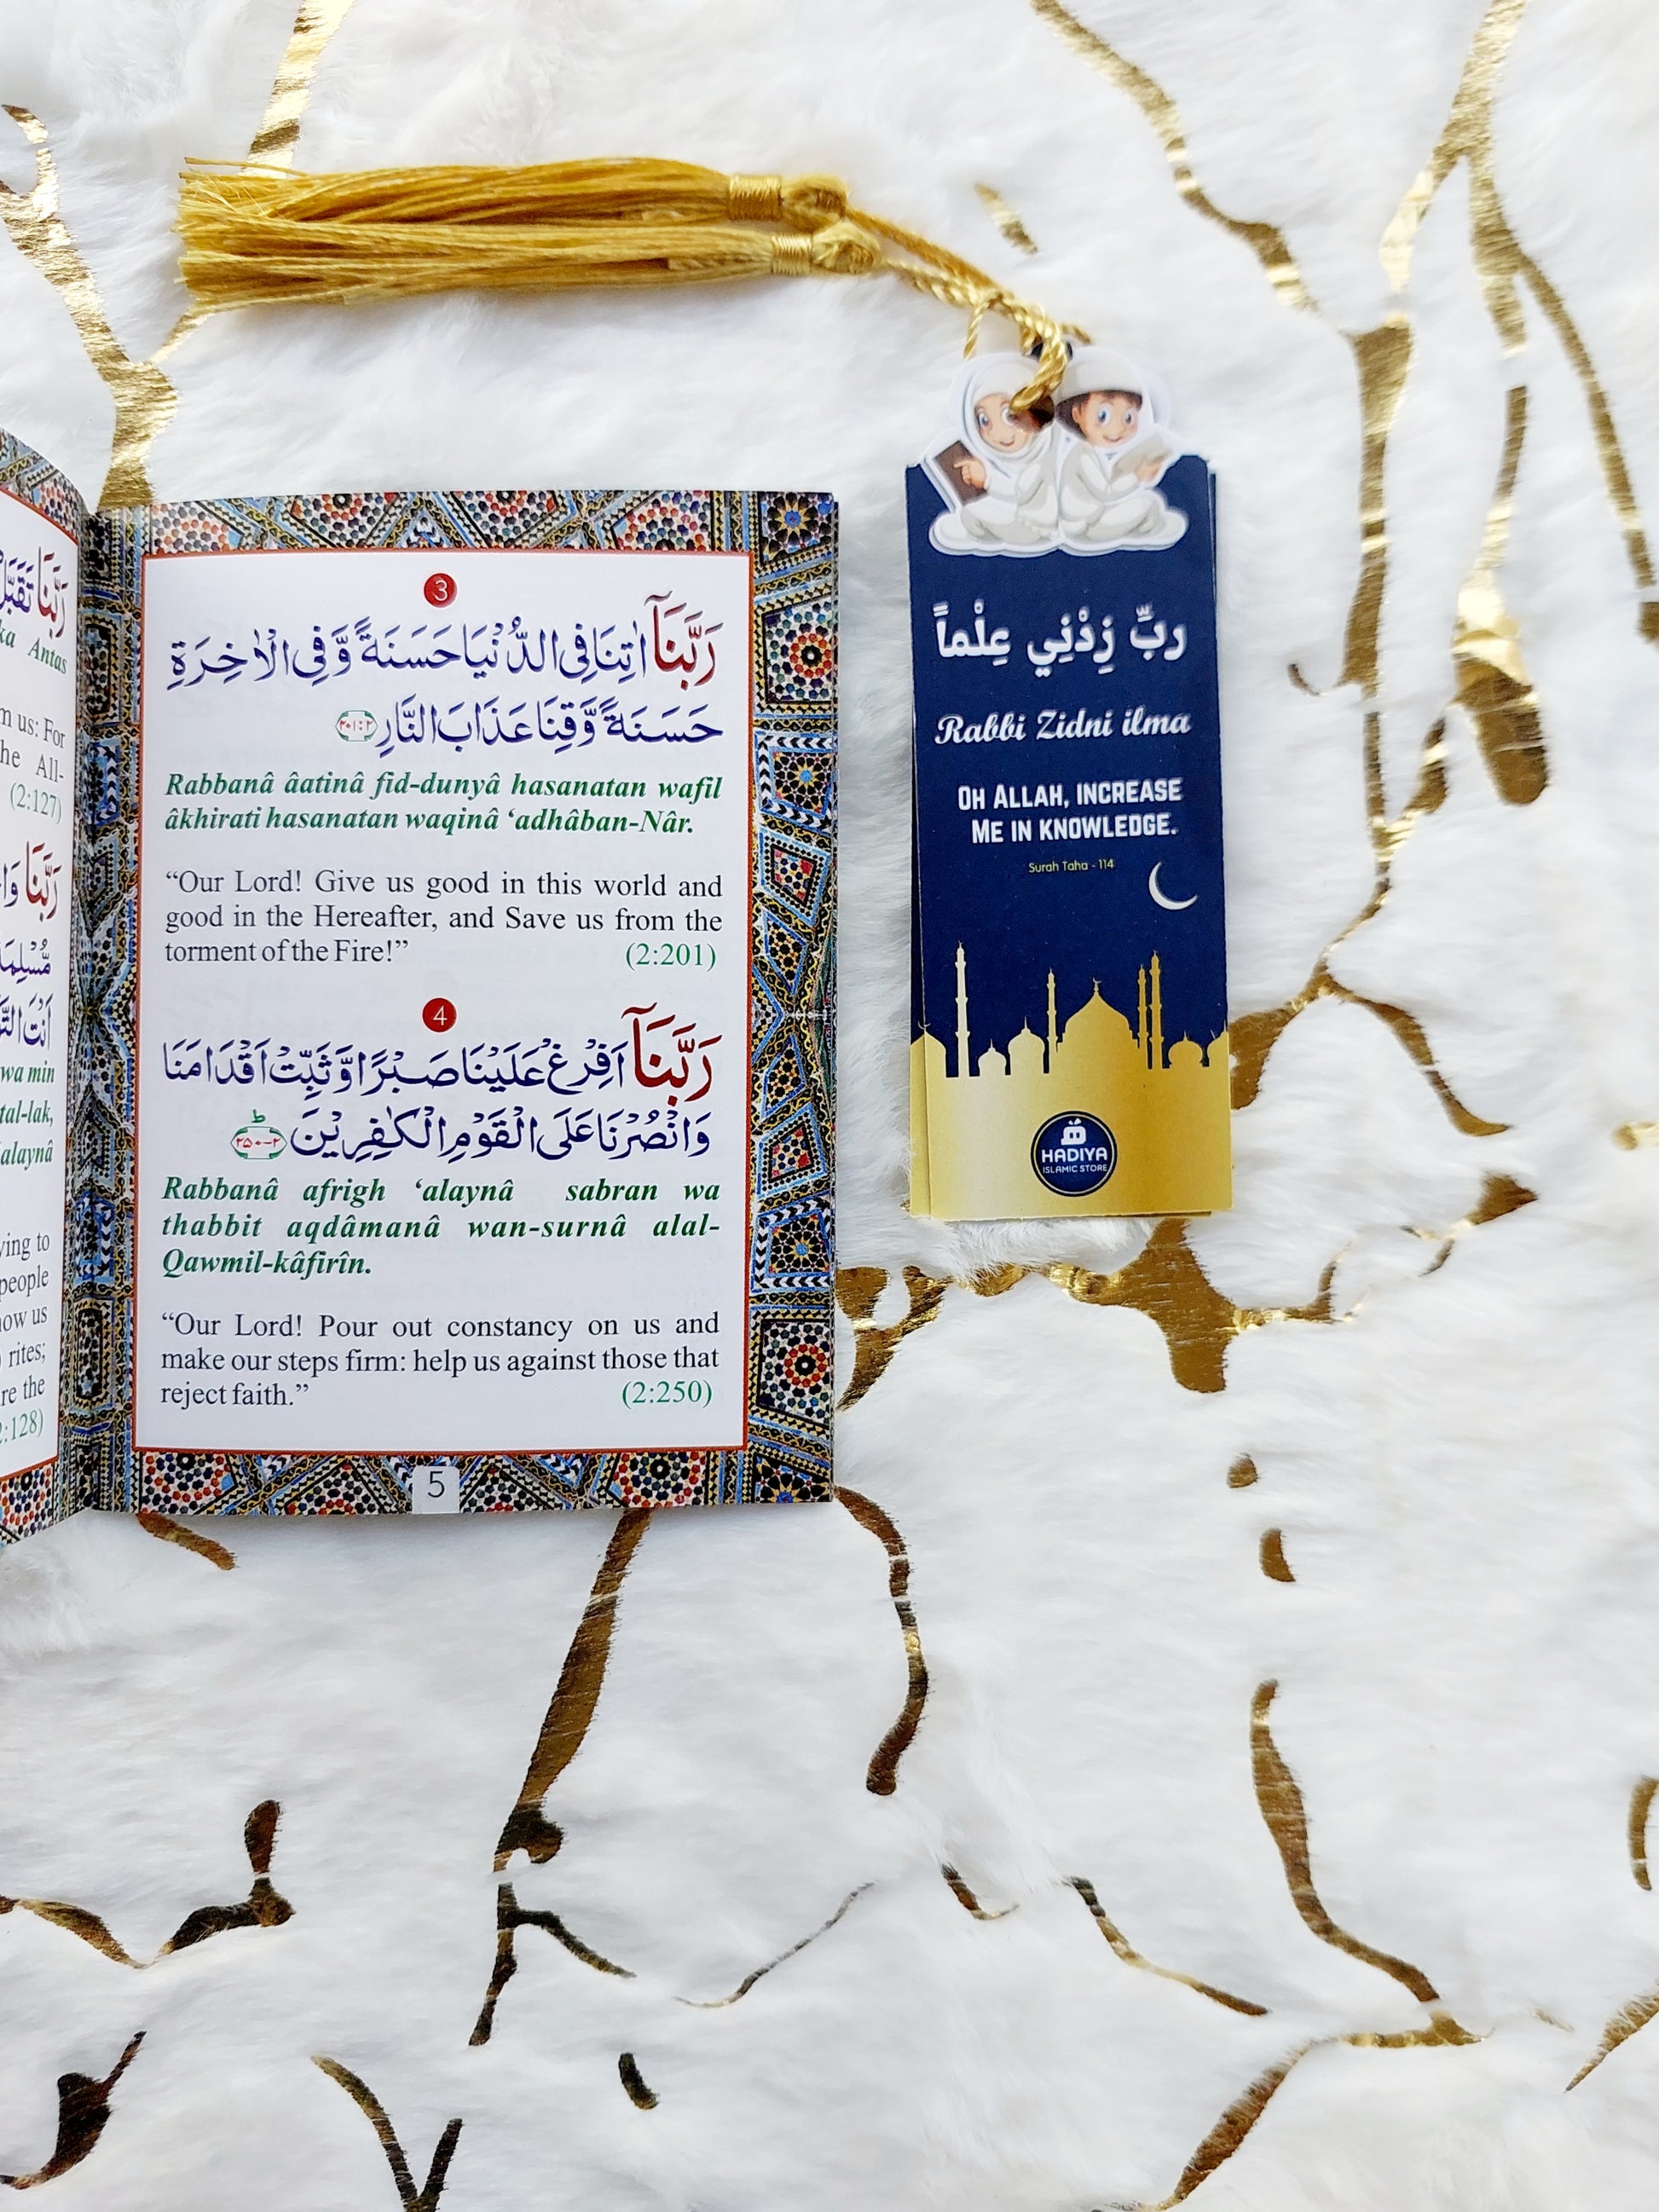 رَبَّنَا تَقَبَّلْ
ka Antas
m us: For
he All-
(2:127)
رَبَّنَا
wa min
tal-lak,
alaynâ
ying to
people
how us
rites;
re the
2:128)
3
رَبَّنَآ اٰتِنَا فِى الدُّنْيَا حَسَنَةً وَّفِى الْاٰخِرَةِ
حَسَنَةً وَّقِنَا عَذَابَ النَّارِ ۲:۲۰۱
Rabbanâ âatinâ fid-dunyâ hasanatan wafil
âkhirati hasanatan waqinâ ‘adhâban-Nâr.
“Our Lord! Give us good in this world and
good in the Hereafter, and Save us from the
torment of the Fire!” (2:201)
4
رَبَّنَآ اَفْرِغْ عَلَيْنَا صَبْرًا وَّثَبِّتْ اَقْدَامَنَا
وَانْصُرْنَا عَلَى الْقَوْمِ الْكٰفِرِيْنَ ط ۲-۲۵۰
Rabbanâ afrigh ‘alaynâ sabran wa
thabbit aqdâmanâ wan-surnâ alal-
Qawmil-kâfirîn.
“Our Lord! Pour out constancy on us and
make our steps firm: help us against those that
reject faith.” (2:250)
5
ربِّ زِدْنِي عِلْماً
Rabbi Zidni ilma
OH ALLAH, INCREASE
ME IN KNOWLEDGE.
Surah Taha - 114
HADIYA
ISLAMIC STORE